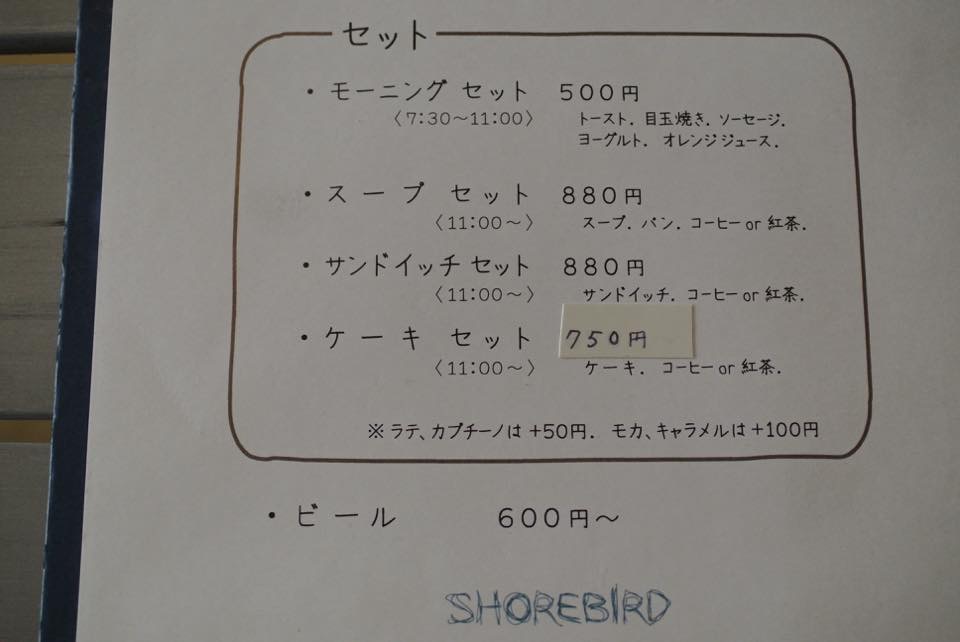 セット
・モーニング セット 500円
〈7:30～11:00〉 トースト. 目玉焼き. ソーセージ.
ヨーグルト. オレンジジュース.
・スープ セット 880円
〈11:00～〉 スープ. パン. コーヒー or 紅茶.
・サンドイッチ セット 880円
〈11:00～〉 サンドイッチ. コーヒー or 紅茶.
・ケーキ セット 750円
〈11:00～〉 ケーキ. コーヒー or 紅茶.
※ ラテ、カプチーノは +50円. モカ、キャラメルは +100円
・ビール 600円～
SHOREBIRD